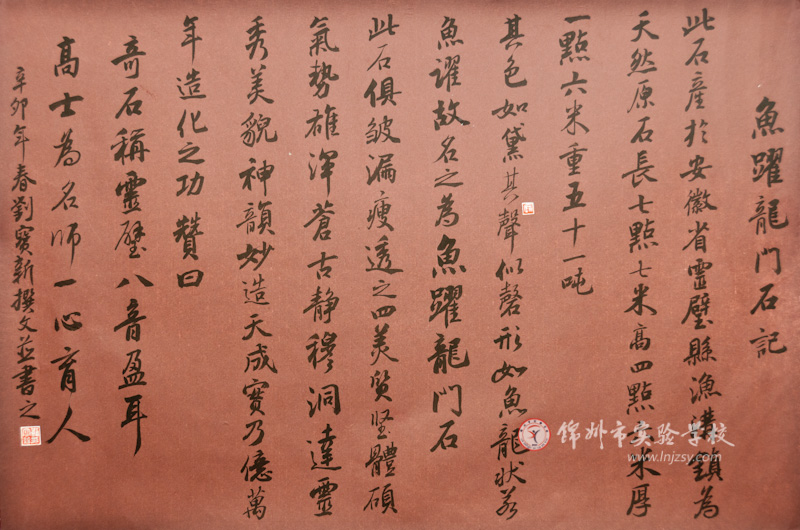 魚躍龍門石記
此石産於安徽省靈璧縣漁溝鎮為
天然原石長七點七米高四點米厚
一點六米重五十一吨
其色如黛其聲似磬形如魚龍狀若
魚躍故名之為魚躍龍門石
此石俱皱漏瘦透之四美質坚體碩
氣勢雄渾蒼古静穆洞達靈
秀美貌神韻妙造天成實乃億萬
年造化之功贊曰
奇石稱靈璧八音盈耳
高士為名師一心育人
辛卯年春劉寶新撰文並書之
锦州市实验学校
www.lnjzsy.com